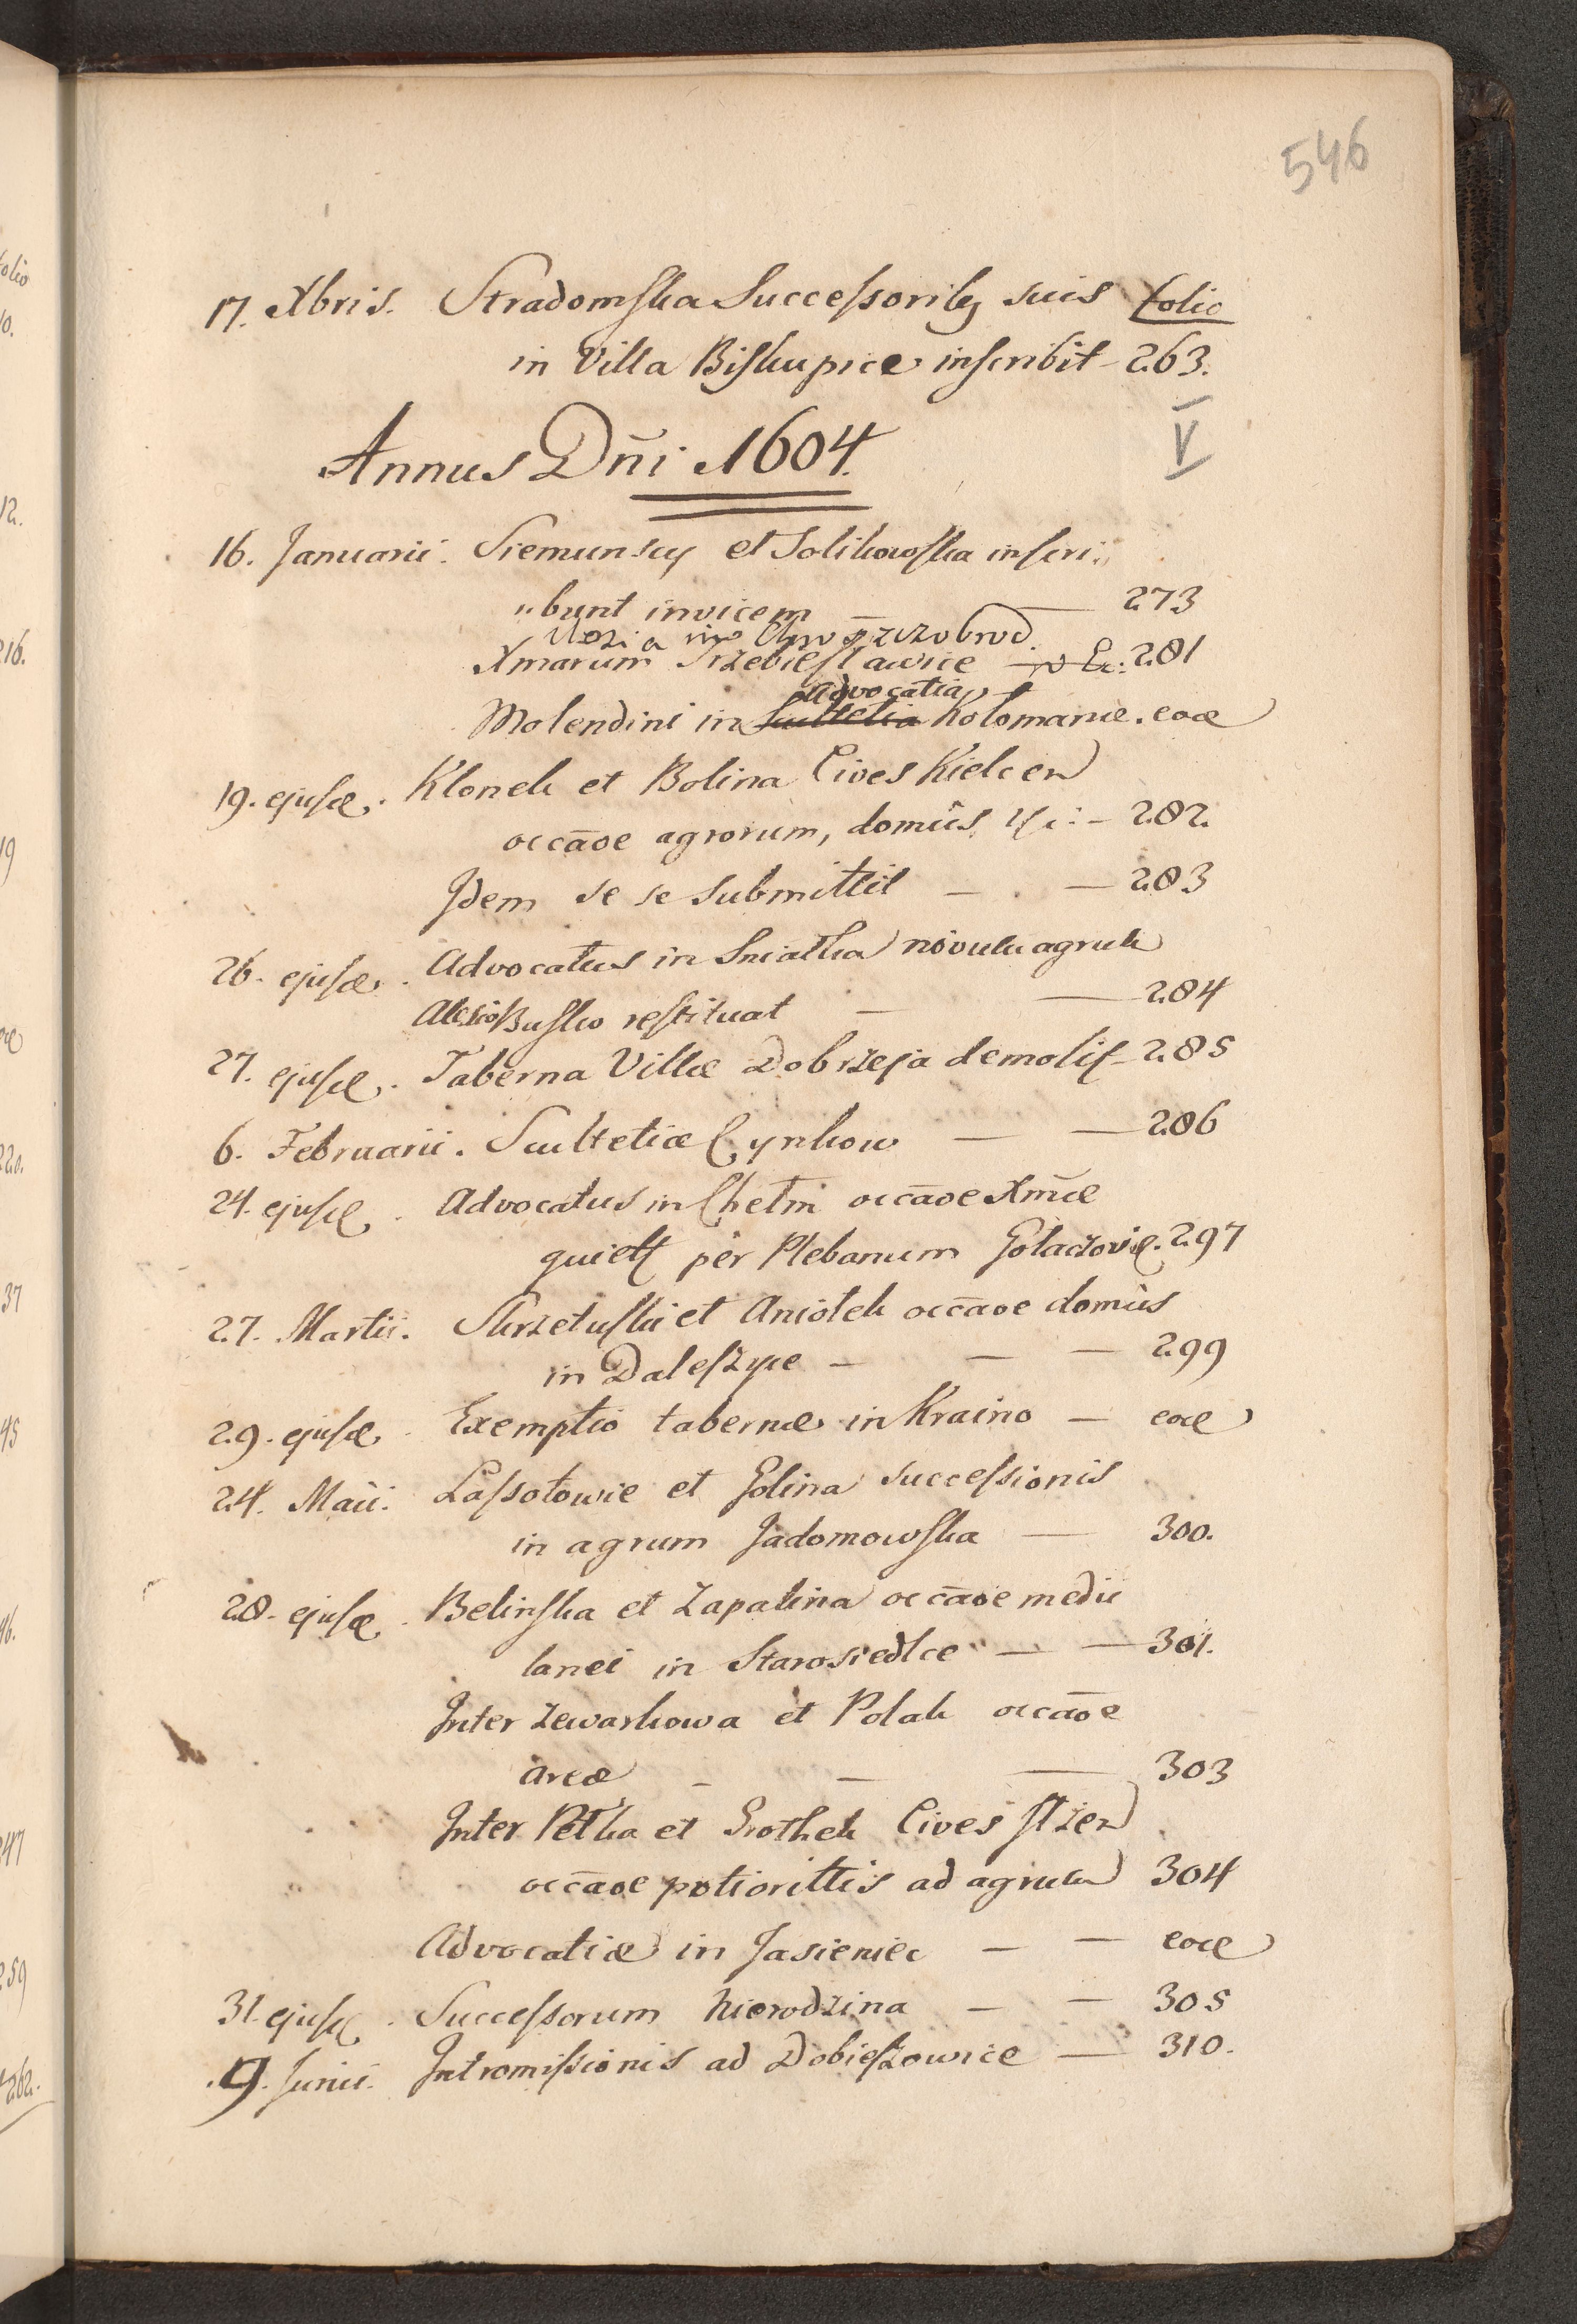 546
17. Xbris. Stradomska Successorib9 suis folio
in Villa Biskupice inscribit - 263.
V
Annus Dn̄i 1604.
16. Januarii. Siemunscy et Solikowska inscri:
"bunt invicem — — 273
Xmarum Trzebiesławice — 281
Advocatia
Molendini in Scultetia Kołomanie. eođ
19. ejusđ. Klonek et Bolina Cives Kielcen
occāoe agrorum, domûs, &c: - 282.
Idem se se submittit — — 283
26. ejusđ. Advocatus in Sniatka agrum
Busko restituat — — 284
27. ejusđ. Taberna Villæ Dobrzeja demolit - 285
6. Februarii. Scultetiæ Cynkow — — 286
24. ejusđ. Advocatus in Chełm occāoe Xm̄æ
quiett per Plebanum Gołaczovię. 297
27. Martii. Skrzetuski et Aniołek occāoe domûs
in Daleszyce — — — 299
29. ejusđ. Exemptio tabernæ in Kraino — eođ
24. Maii. Lassotowie et Golina successionis
in agrum Jadomowska — 300.
28. ejusđ. Belinska et Zapalina occāoe medii
lanei in Starosiedlce — — 301.
Inter Zewarkowa et Polak occāoe
areæ — — — 303
Inter Petka et Grothek Cives
occāoe potiorittis ad agrum 304
Advocatiæ in Jasieniec — — eođ
31. ejusđ. Successorum Nierodzina — — 305
9. Junii. Intromissionis ad Dobieszowice — 310.